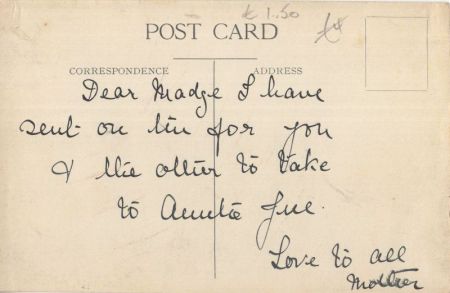 £ 1.50
POST CARD
CORRESPONDENCE ADDRESS
Dear Madge I have
sent on tin for you
& the other to take
to Auntie
Love to all
Mother